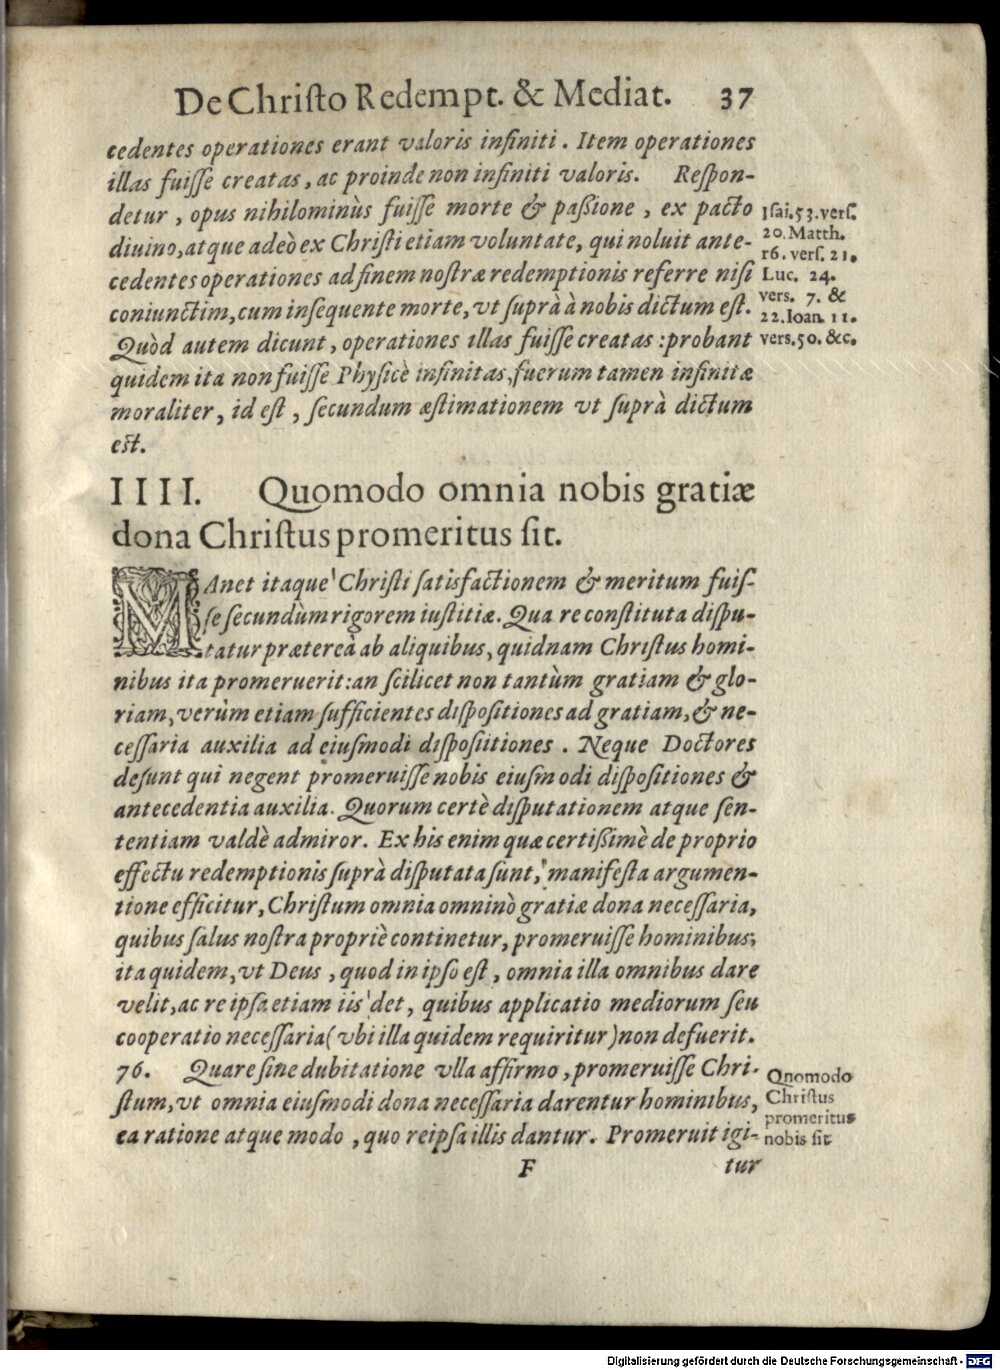 De Chriſto Redempt. & Mediat. 37
cedentes operationes erant valoris infiniti. Item operationes
illas fuiſſe creatas, ac proinde non infiniti valoris. Reſpon-
detur, opus nihilominùs fuiſſe morte & paßione, ex pacto
diuino, atque adeò ex Chriſti etiam voluntate, qui noluit ante-
cedentes operationes ad finem noſtræ redemptionis referre niſi
coniunctim, cum inſequente morte, vt ſuprà à nobis dictum eſt.
Quòd autem dicunt, operationes illas fuiſſe creatas: probant
quidem ita non fuiſſe Phyſicè infinitas, fuerum tamen infinitæ
moraliter, id eſt, ſecundum æſtimationem vt ſuprà dictum
eſt.
Iſai. 53. verſ.
20. Matth.
r6. verſ. 21.
Luc. 24.
vers. 7. &
22. Ioan. 11.
vers. 50. &c.
IIII. Quomodo omnia nobis gratiæ
dona Chriſtus promeritus ſit.
MAnet itaque Chriſti ſatisfactionem & meritum fuiſ-
ſe ſecundùm rigorem iuſtitiæ. Qua re conſtituta diſpu-
tatur prætereà ab aliquibus, quidnam Chriſtus homi-
nibus ita promeruerit: an ſcilicet non tantùm gratiam & glo-
riam, verùm etiam ſufficientes diſpoſitiones ad gratiam, & ne-
ceſſaria auxilia ad eiuſmodi diſpoſiitiones. Neque Doctores
deſunt qui negent promeruiſſe nobis eiuſmodi diſpoſitiones &
antecedentia auxilia. Quorum certè diſputationem atque ſen-
tentiam valdè admiror. Ex his enim quæ certißimè de proprio
effectu redemptionis ſuprà diſputata ſunt, manifeſta argumen-
tione efficitur, Chriſtum omnia omninò gratiæ dona neceſſaria,
quibus ſalus noſtra propriè continetur, promeruiſſe hominibus;
ita quidem, vt Deus, quod in ipſo eſt, omnia illa omnibus dare
velit, ac re ipſa etiam iis det, quibus applicatio mediorum ſeu
cooperatio neceſſaria (vbi illa quidem requiritur) non defuerit.
76. Quare ſine dubitatione vlla affirmo, promeruiſſe Chri-
ſtum, vt omnia eiuſmodi dona neceſſaria darentur hominibus,
ea ratione atque modo, quo reipſa illis dantur. Promeruit igi-
Qnomodo
Chriſtus
promeritus
nobis ſit
F tur
Digitalisierung gefördert durch die Deutsche Forschungsgemeinschaft - DFG